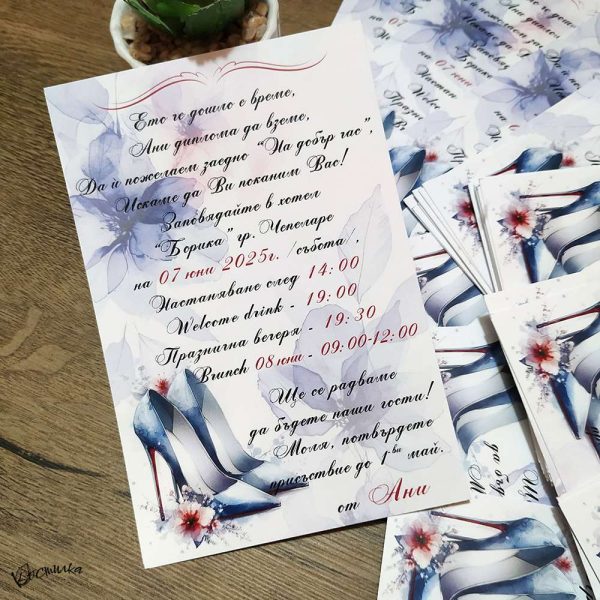 Ето че дошло е време,
Ани диплома да вземе,
Да ѝ пожелаем заедно "На добър час",
Искаме да Ви поканим Вас!
Заповядайте в хотел
"Борика" гр. Чепеларе
на 07 юни 2025г. /събота/,
Настаняване след 14:00
Welcome drink - 19:00
Празнична вечеря - 19:30
Brunch 08 юни - 09:00-12:00
Ще се радваме
да бъдете наши гости!
Моля, потвърдете
присъствие до 1ви май.
от Ани